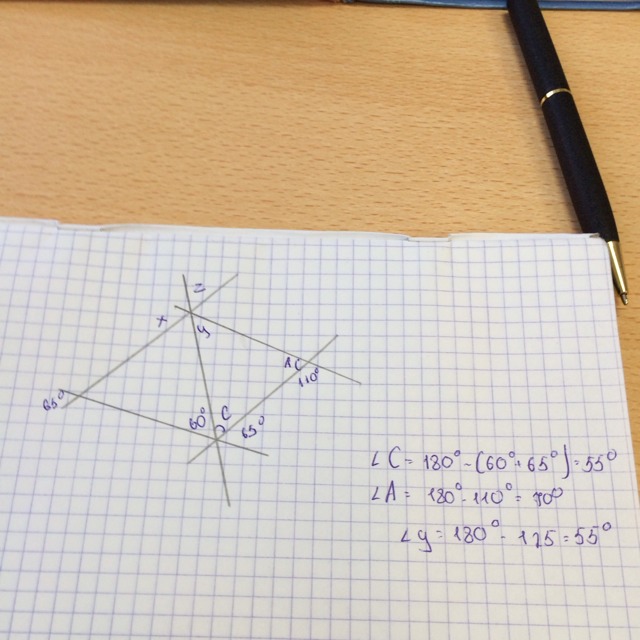 z
x
y
A
110°
65°
60° C
65°
∠C = 180° - (60° + 65°) = 55°
∠A = 180° - 110° = 70°
∠y = 180° - 125 = 55°